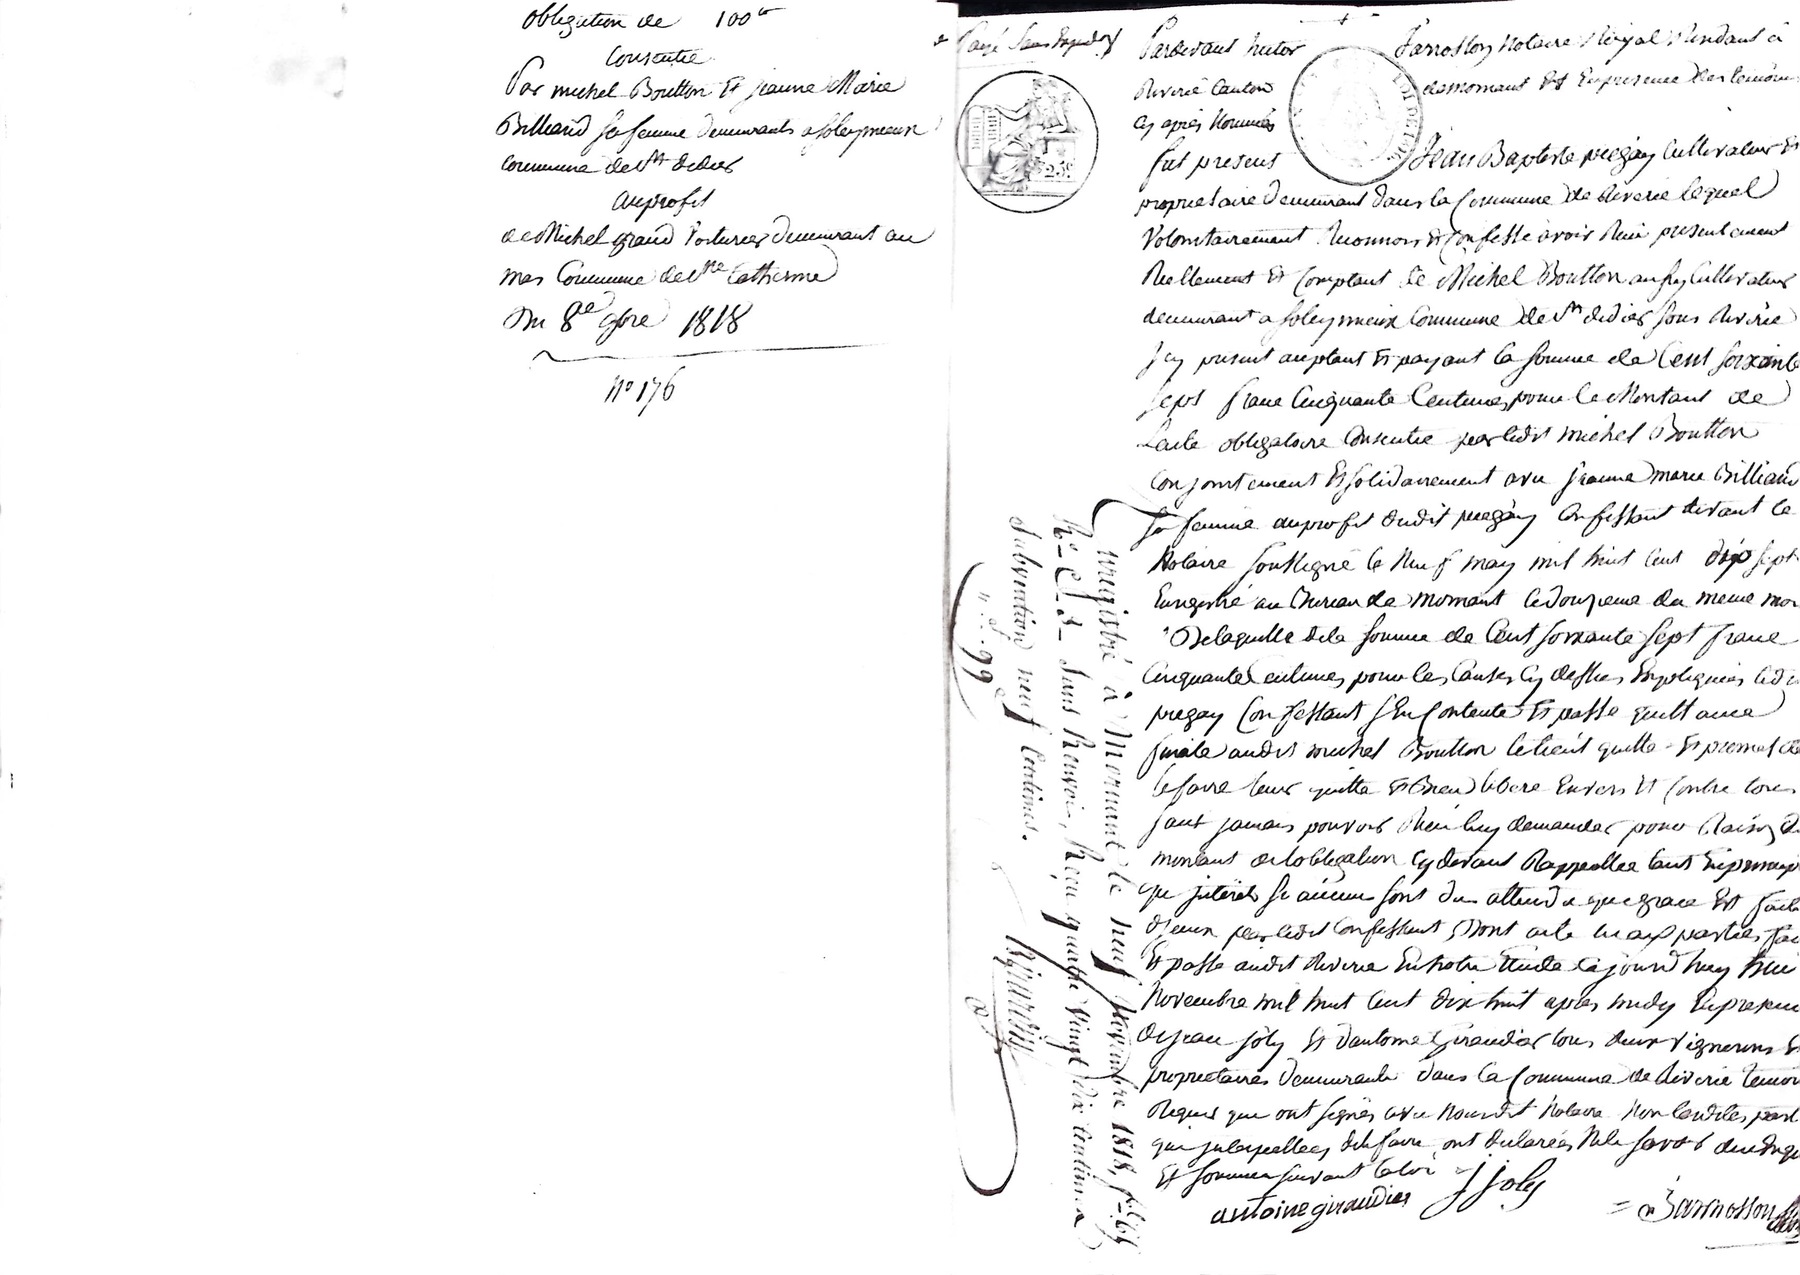 obligation de 100
Consentie
Par michel Boutton Et jeanne Marie
Billiand sa femme demeurants a soleymieux
commune de st didier
au profit
de Michel grand Voiturier demeurant au
mas Commune de ste Catherine
Du 8e 9bre 1818
N° 176
Pardevant hector Jarrosson Notaire Royal Résidant à
Riverie Canton de mornant Et En presence des temoins
Cy après Nommés
fut present Jean Baptiste pregay Cultivateur Et
proprietaire demeurant dans la Commune de Riverie lequel
Volontairement Reconnois Et Confesse avoir Reçu presentement
Reellement Et Comptant de Michel Boutton Cultivateur
demeurant a soleymieux Commune de st didier sous Riverie
Icy present acceptant Et payant la somme de Cent soixante
sept franc Cinquante Centimes pour le Montant de
L'acte obligatoire Consentie par ledit michel Boutton
Conjointement Et solidairement avec jeanne marie Billiand
sa femme au profit dudit pregay Confessant devant le
Notaire soussigné le Neuf may mil huit Cent dix sept
Enregistré au Bureau de mornant le douzieme du meme mois
De laquelle dite somme de Cent soixante sept franc
Cinquante Centimes pour les Causes Cy dessus Expliquées ledit
pregay Confessant s'En Contente Et passe quittance
finale audit michel Boutton le tient quitte Et promet de
le faire tenir quitte Et Bien libere Envers Et Contre tous
sant jamais pouvoir Rien luy demander pour Raison du
montant de l'obligation Cy devant Rappellée tant En principal
que jnterets si aucuns sont du attendu que grace Est faite
d'jceux par ledit Confessant Dont acte aux parties fait
Et passé audit Riverie En notre Etude Cejourd'huy huit
Novembre mil huit Cent dix huit après midy En presence
de jean joly Et d'antoine Giraudier tous deux vignerons Et
proprietaires demeurants dans la Commune de Riverie temoins
Requis que ont signés avec Nousdit Notaire Non lesdites parties
qui jnterpellees de le faire ont declarées Ne le savoir de ce Enquis
Et sommes suivant la loi
antoine giraudier J joly Jarrosson
Enregistré à Mornant le neuf Novembre 1818, f° 65
R° C 2 sans Renvoi, Reçu quatre vingt dix centimes
Subvention neuf Centimes.
99